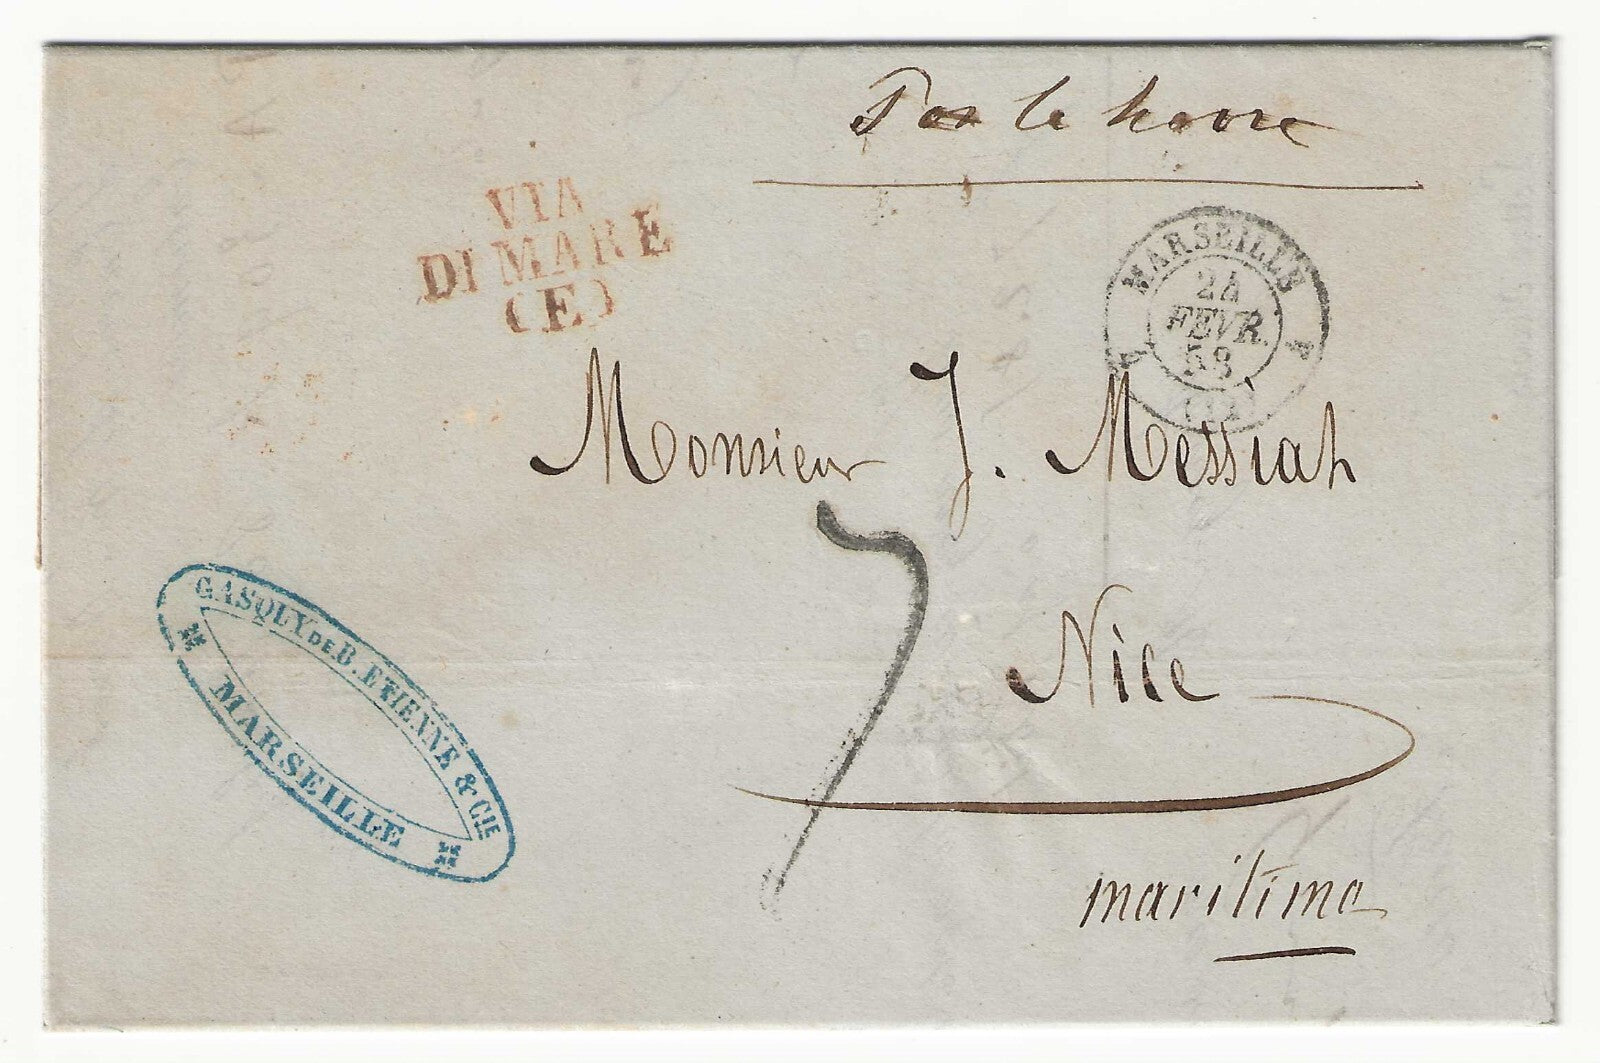 Par le havre
VIA
DI MARE
(E)
MARSEILLE
24
FEVR.
58
(12)
Monsieur J. Messiah
Nice
maritima
GASQUY DE B. ETIENNE & CIE
MARSEILLE